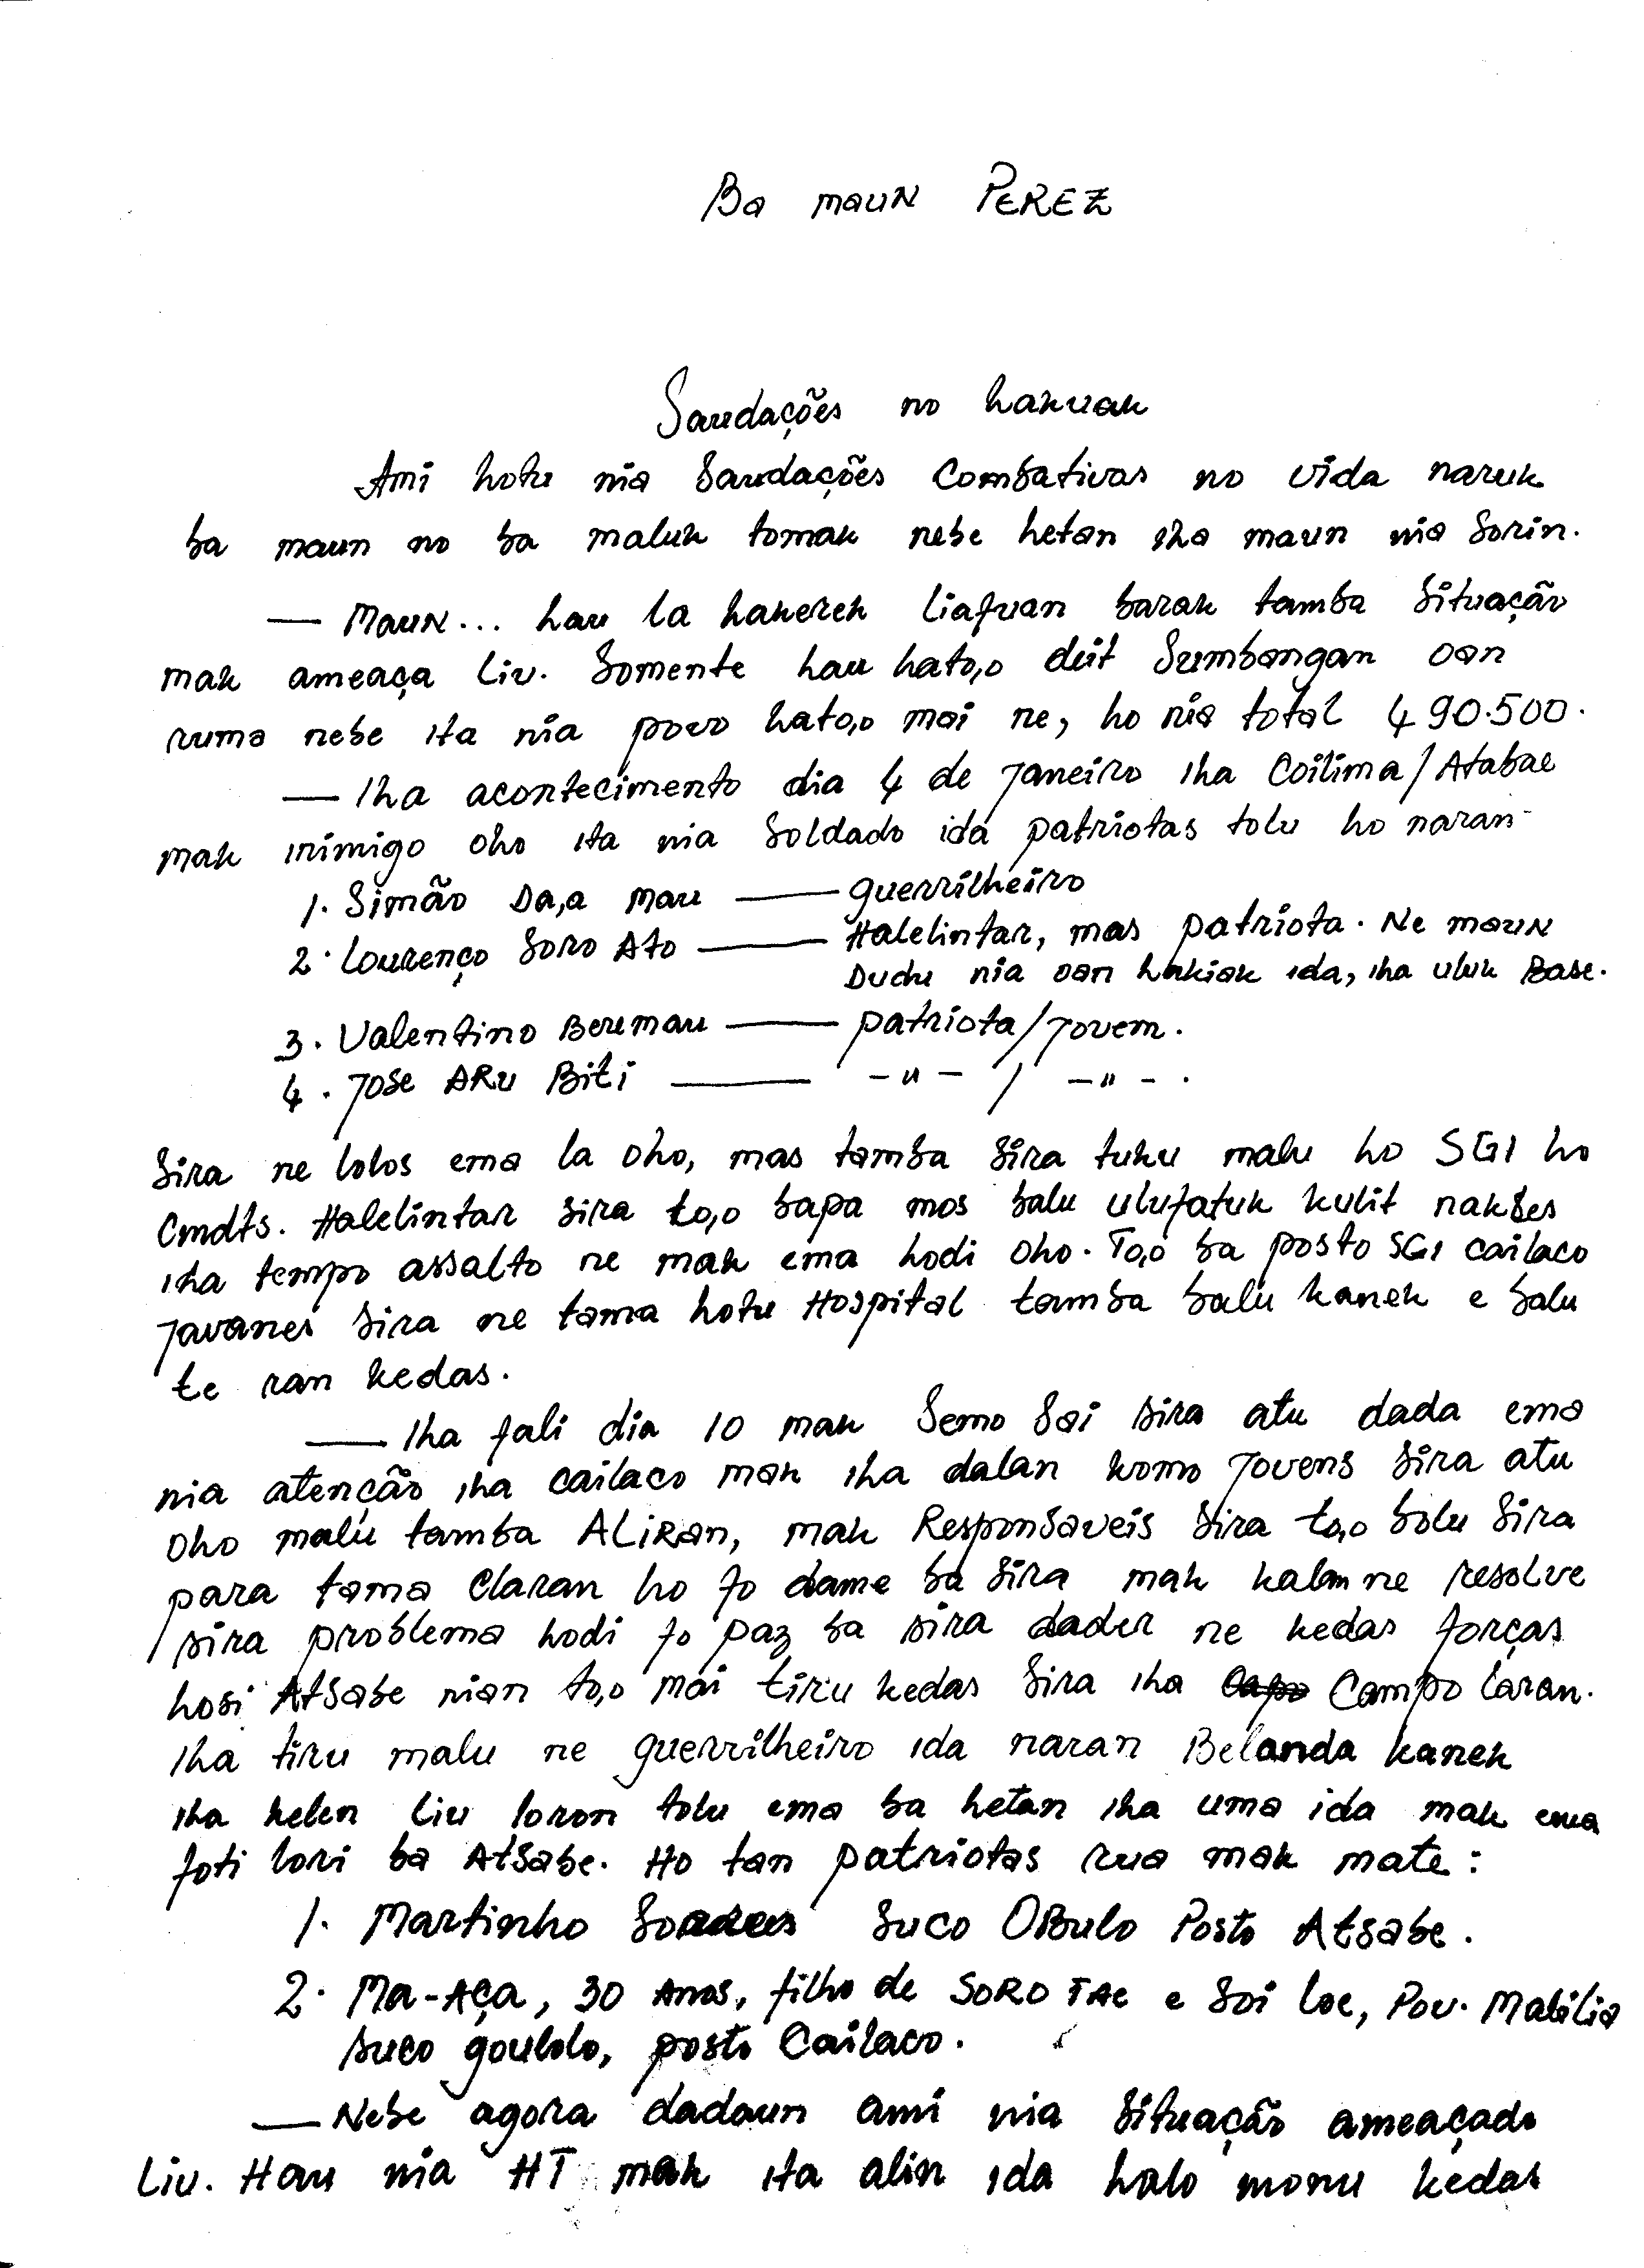 Ba maun PEREZ
Saudações no hakuak
Ami hotu nia Saudações Combativas no vida naruk
ba maun no ba maluk tomak nebe hetan iha maun nia sorin.
— Maun... hau la hakerek liafuan barak tamba situação
mak ameaça liv. Somente hau hato,o deit Sumbangan oan
ruma nebe ita nia povo hato,o mai ne, ho nia total 490.500.
— Iha acontecimento dia 4 de Janeiro iha Coilima/Atabae
mak inimigo oho ita nia Soldado ida patriotas tolu ho naran-
1. Simão Da,a Mau — guerrilheiro
2. Lourenço Soro Ato — Halelintar, mas patriota. Ne maun
Dudu nia oan hakiak ida, iha uluk Base.
3. Valentino Beremau — patriota/Jovem.
4. Jose ARu Biti — -"- / -"-.
Sira ne lolos ema la oho, mas tamba sira tuku malu ho SGI ho
Cmdts. Halelintar sira to,o bapa mos balu ulufatuk kulit nakbes
iha tempo assalto ne mak ema hodi oho. To,o ba posto SGI cailaco
Javanes sira ne tama hotu Hospital tamba balu kanek e balu
te ran kedas.
— Iha fali dia 10 mak Semo Soi sira atu dada ema
nia atenção iha cailaco mak iha dalan komo Jovens sira atu
oho malu tamba ALiRan, mak Responsaveis sira to,o bolu sira
para tama Claran ho fo dame ba sira mak kalan ne resolve
sira problema hodi fo paz ba sira dader ne kedas forças
hosi Atsabe nian to,o mai tiru kedas sira iha Campo laran.
Iha tiru malu ne guerrilheiro ida naran Belanda kanek
iha kelen liu loron tolu ema ba hetan iha uma ida mak ema
foti lori ba Atsabe. Ho tan patriotas rua mak mate:
1. Martinho Suco OBulo Posto Atsabe.
2. Ma-Aça, 30 Anos, filho de SORO TAE e Soi loe, Pov. Mabilia
suco goulolo, posto Cailaco.
— Nebe agora dadaun ami nia situação ameaçado
liv. Hau nia HT mak ita alin ida halo monu kedas